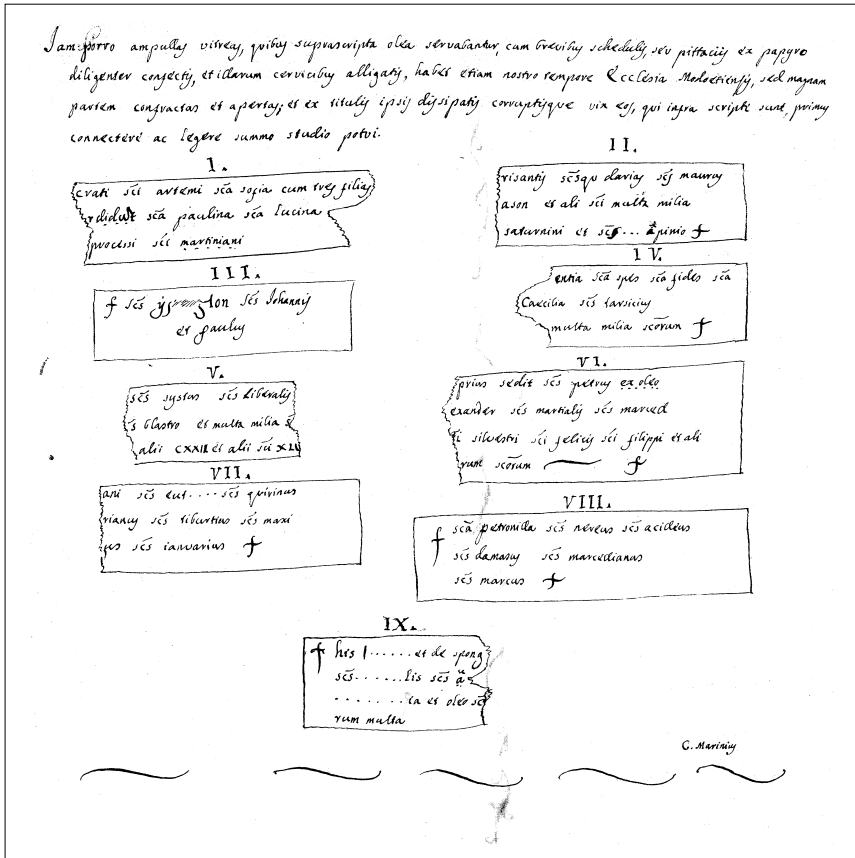 Jam Porro ampullas vitreas, quibus suprascripta olea servabantur, cum brevibus schedulis, seu pittaciis ex papyro
diligenter confectis, et illarum cervicibus alligatis, habet etiam nostro tempore Ecclesia Modoetiensis, sed magnam
partem confractas et apertas; et ex titulis ipsis dissipatis corruptisque vix eos, qui infra scripti sunt, primus
connectere ac legere summo studio potui.
I.
crati sc̄i artemi sc̄a sofia cum tres filias
rdidut sc̄a paulina sc̄a lucina
processi sc̄i martiniani
II.
risantis sc̄s qu darias sc̄s maurus
ason et ali sc̄i multa milia
saturnini et sc̄s ... apinio †
III.
† sc̄s ion sc̄s Johannis
et paulus
IV.
entia sc̄a spes sc̄a fides sc̄a
Caecilia sc̄s tarsicius
multa milia sc̄orum †
V.
sc̄s systus sc̄s liberalis
s̄ blastro et multa milia s̄
alii CXXII et alii sc̄i XLV
VI.
prius sedit sc̄s petrus ex oleo
exander sc̄s martialis sc̄s marcell
ti silvestri sc̄i felicis sc̄i filippi et ali
rum sc̄orum †
VII.
ani sc̄s eut.... sc̄s quirinus
rianus sc̄s tiburtius sc̄s maxi
us sc̄s ianuarius †
VIII.
† sc̄a petronilla sc̄s nereus sc̄s acilleus
sc̄s damasus sc̄s marcellianus
sc̄s marcus †
IX.
† his l...... et de spong
sc̄s.......lis sc̄s a
........ta et oleo sc̄
rum multa
C. Marinius